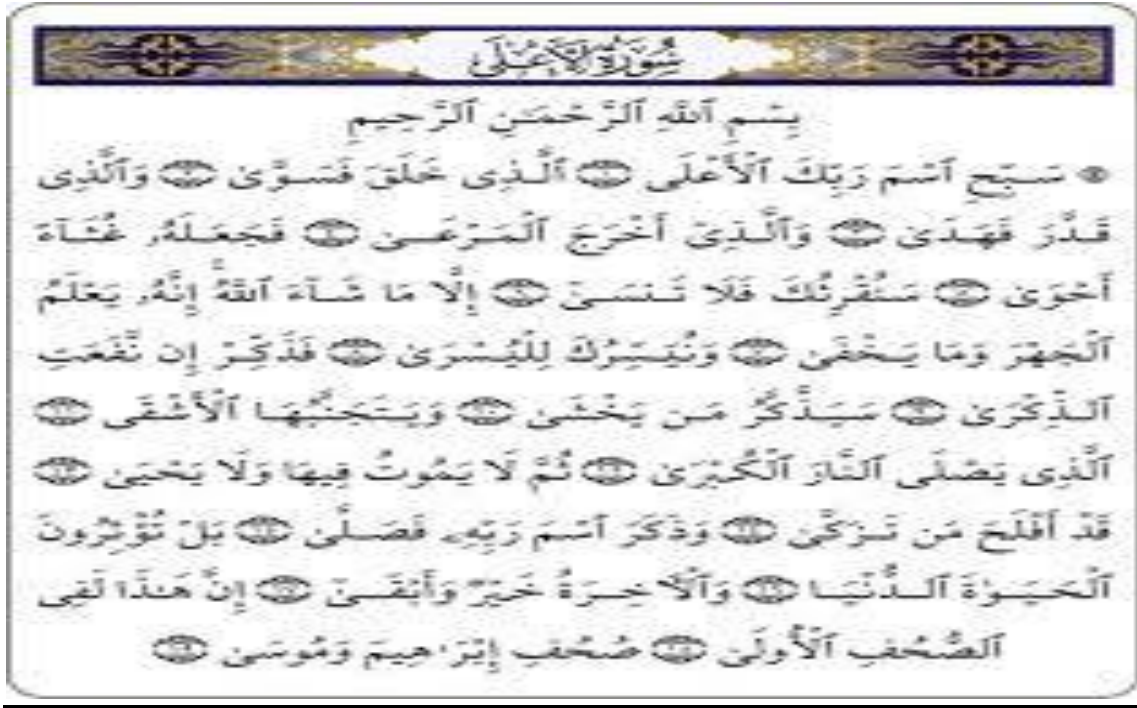 سُورَةُ الأَعْلَى
بِسْمِ ٱللَّهِ ٱلرَّحْمَـٰنِ ٱلرَّحِيمِ
۞ سَبِّحِ ٱسْمَ رَبِّكَ ٱلْأَعْلَى ۝١ ٱلَّذِى خَلَقَ فَسَوَّىٰ ۝٢ وَٱلَّذِى
قَدَّرَ فَهَدَىٰ ۝٣ وَٱلَّذِىٓ أَخْرَجَ ٱلْمَرْعَىٰ ۝٤ فَجَعَلَهُۥ غُثَآءً
أَحْوَىٰ ۝٥ سَنُقْرِئُكَ فَلَا تَنسَىٰٓ ۝٦ إِلَّا مَا شَآءَ ٱللَّهُ ۚ إِنَّهُۥ يَعْلَمُ
ٱلْجَهْرَ وَمَا يَخْفَىٰ ۝٧ وَنُيَسِّرُكَ لِلْيُسْرَىٰ ۝٨ فَذَكِّرْ إِن نَّفَعَتِ
ٱلذِّكْرَىٰ ۝٩ سَيَذَّكَّرُ مَن يَخْشَىٰ ۝١٠ وَيَتَجَنَّبُهَا ٱلْأَشْقَى ۝١١
ٱلَّذِى يَصْلَى ٱلنَّارَ ٱلْكُبْرَىٰ ۝١٢ ثُمَّ لَا يَمُوتُ فِيهَا وَلَا يَحْيَىٰ ۝١٣
قَدْ أَفْلَحَ مَن تَزَكَّىٰ ۝١٤ وَذَكَرَ ٱسْمَ رَبِّهِۦ فَصَلَّىٰ ۝١٥ بَلْ تُؤْثِرُونَ
ٱلْحَيَوٰةَ ٱلدُّنْيَا ۝١٦ وَٱلْـَٔاخِرَةُ خَيْرٌ وَأَبْقَىٰٓ ۝١٧ إِنَّ هَـٰذَا لَفِى
ٱلصُّحُفِ ٱلْأُولَىٰ ۝١٨ صُحُفِ إِبْرَٰهِيمَ وَمُوسَىٰ ۝١٩